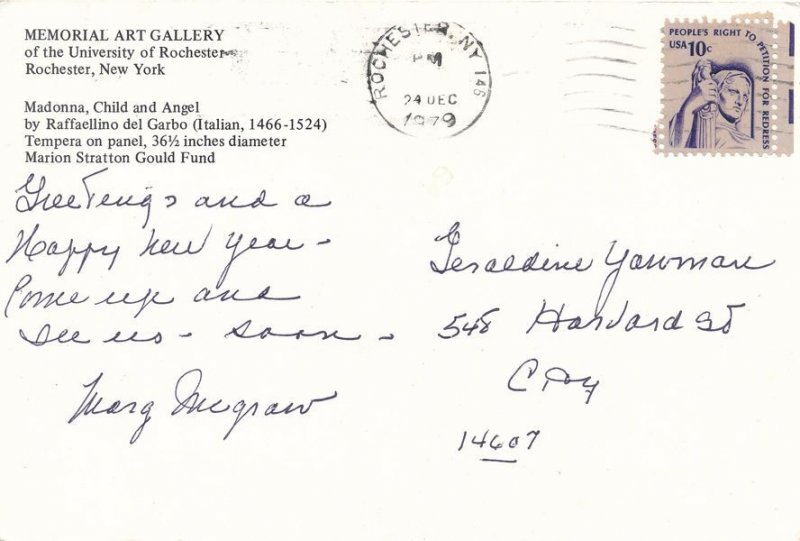 MEMORIAL ART GALLERY
of the University of Rochester
Rochester, New York
Madonna, Child and Angel
by Raffaellino del Garbo (Italian, 1466-1524)
Tempera on panel, 36½ inches diameter
Marion Stratton Gould Fund
Greetings and a
Happy New Year -
Come up and
see us - soon -
Marg McGraw
ROCHESTER, NY 146
PM
24 DEC
1979
PEOPLE'S RIGHT TO PETITION FOR REDRESS
USA 10c
Geraldine Yawman
548 Harvard St
City
14607